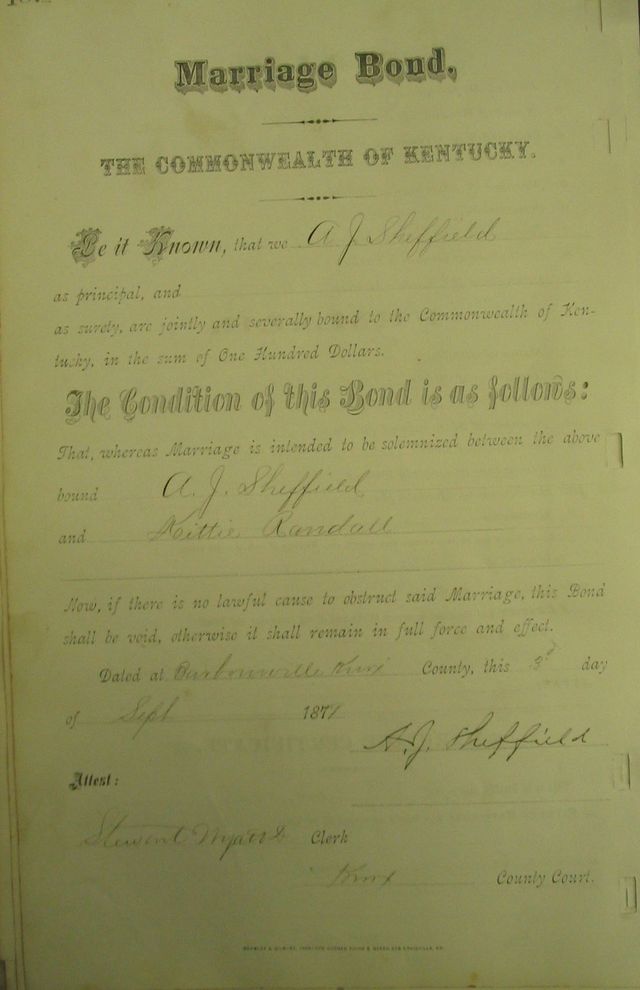 Marriage Bond,
THE COMMONWEALTH OF KENTUCKY.
Be it Known, that we A J Sheffield
as principal, and
as surety, are jointly and severally bound to the Commonwealth of Ken-
tucky, in the sum of One Hundred Dollars.
The Condition of this Bond is as follows:
That, whereas Marriage is intended to be solemnized between the above
bound A. J. Sheffield
and Kittie Randall
Now, if there is no lawful cause to obstruct said Marriage, this Bond
shall be void, otherwise it shall remain in full force and effect.
Dated at Barbourville Knox County, this 3d day
of Sept 1871
A. J. Sheffield
Attest:
Stewart Clerk
Knox County Court.